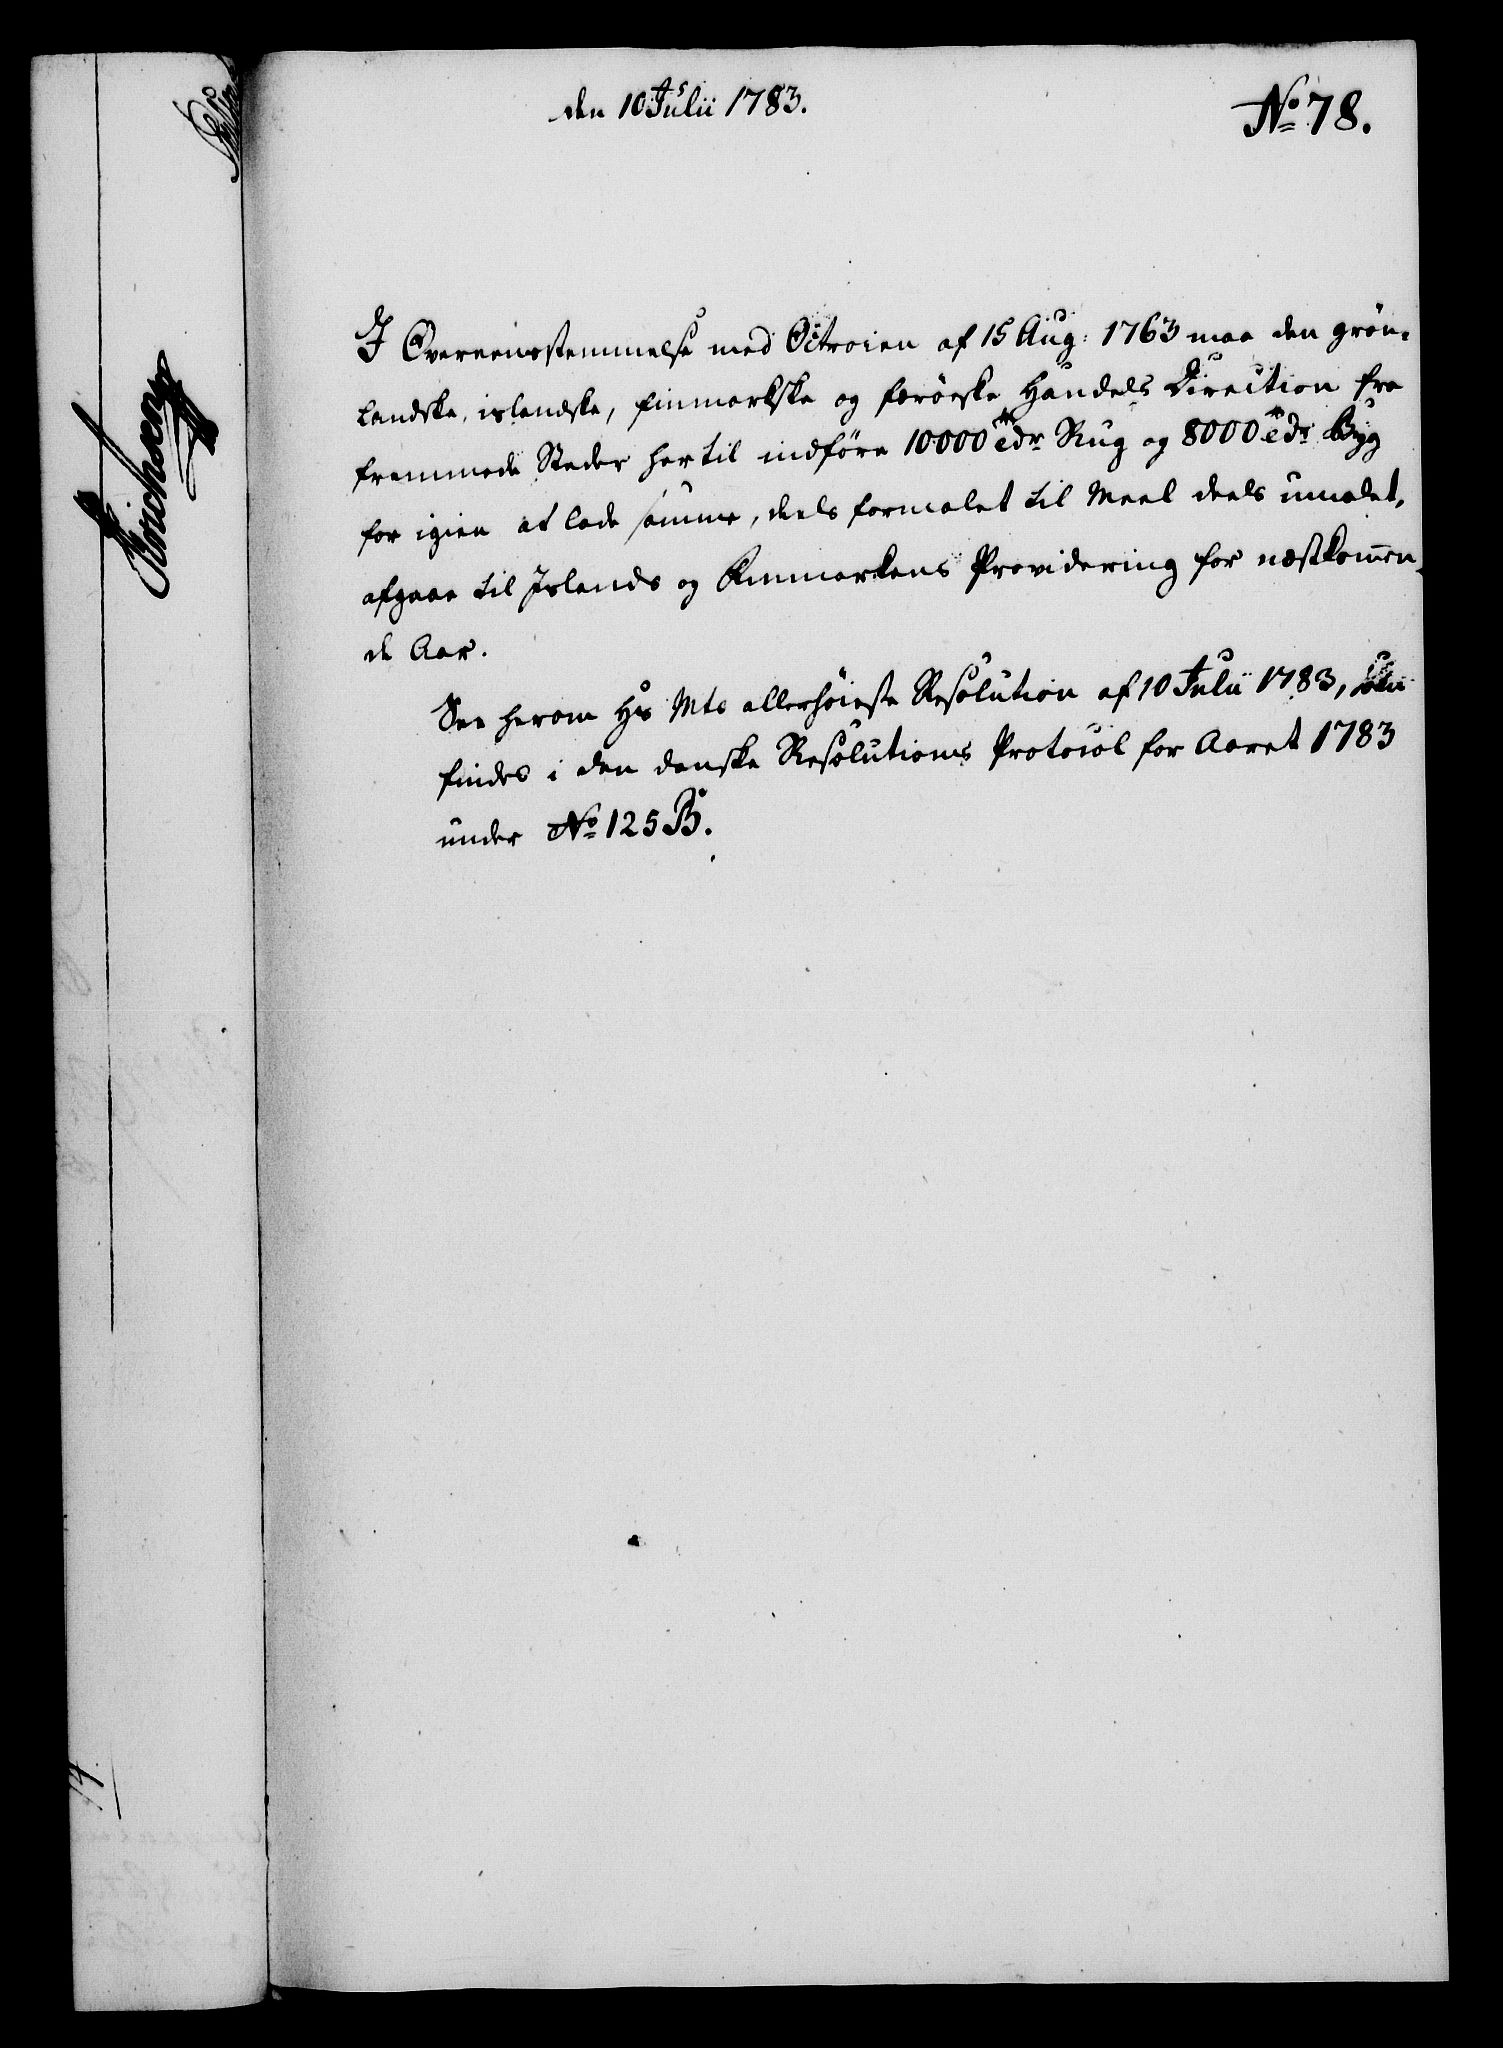 den 10 Julii 1783.
No 78.
I Overeensstemmelse med Octroien af 15 Aug: 1763 maa den grön-
landske, islandske, finmarkske og færöeske Handels Direction fra
fremmede Steder hertil indföre 10000 Tdr Rug og 8000 Tdr Byg
for igien at lade samme, deels formalet til Meel deels umalet,
afgaae til Islands og Finmarkens Providering for næstkommen-
de Aar.
See herom Hs Mts allerhöieste Resolution af 10 Julii 1783, som
findes i den danske Resolutions Protocol for Aaret 1783
under No 125 B.
Erichsen